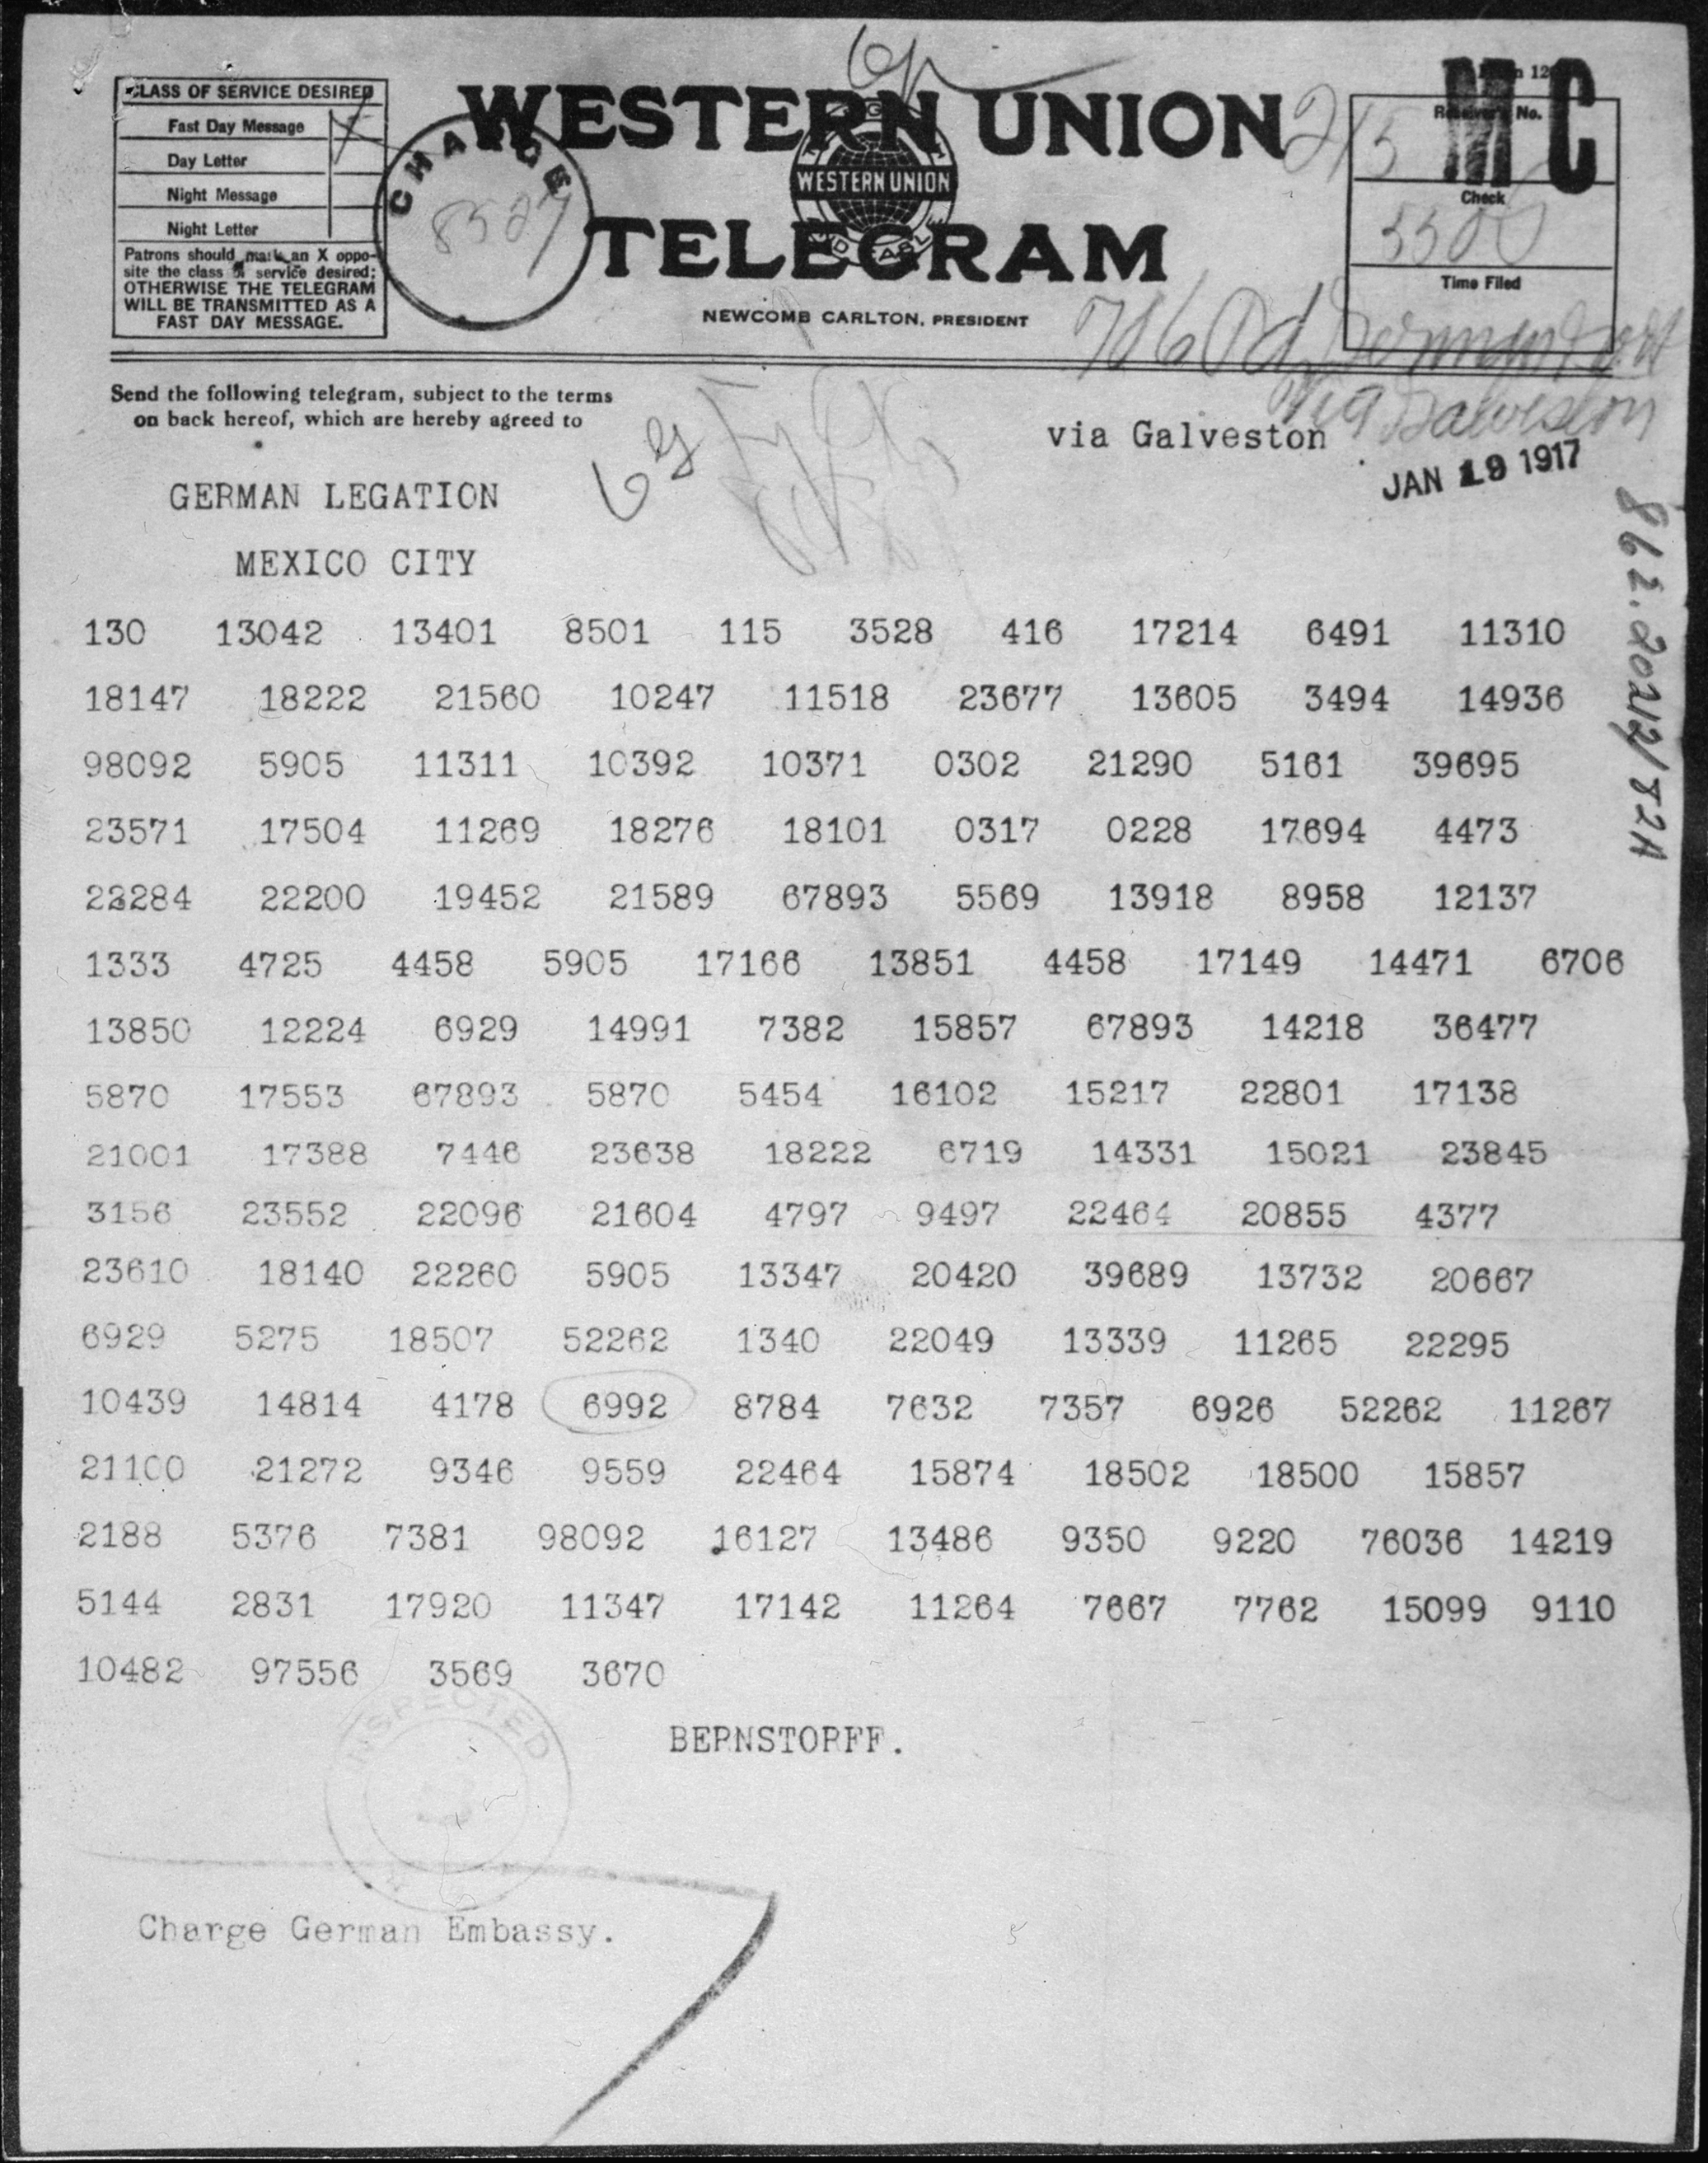 CLASS OF SERVICE DESIRED
Fast Day Message
Day Letter
Night Message
Night Letter
Patrons should mark an X oppo-
site the class of service desired:
OTHERWISE THE TELEGRAM
WILL BE TRANSMITTED AS A
FAST DAY MESSAGE.
CHARGE
WESTERN UNION
WESTERN UNION
TELEGRAM
NEWCOMB CARLTON, PRESIDENT
MC
Receiver's No.
Check
Time Filed
Send the following telegram, subject to the terms
on back hereof, which are hereby agreed to
via Galveston
via Galveston
JAN 19 1917
862.20212/82A
GERMAN LEGATION
MEXICO CITY
130 13042 13401 8501 115 3528 416 17214 6491 11310
18147 18222 21560 10247 11518 23677 13605 3494 14936
98092 5905 11311 10392 10371 0302 21290 5161 39695
23571 17504 11269 18276 18101 0317 0228 17694 4473
22284 22200 19452 21589 67893 5569 13918 8958 12137
1333 4725 4458 5905 17166 13851 4458 17149 14471 6706
13850 12224 6929 14991 7382 15857 67893 14218 36477
5870 17553 67893 5870 5454 16102 15217 22801 17138
21001 17388 7446 23638 18222 6719 14331 15021 23845
3156 23552 22096 21604 4797 9497 22464 20855 4377
23610 18140 22260 5905 13347 20420 39689 13732 20667
6929 5275 18507 52262 1340 22049 13339 11265 22295
10439 14814 4178 6992 8784 7632 7357 6926 52262 11267
21100 21272 9346 9559 22464 15874 18502 18500 15857
2188 5376 7381 98092 16127 13486 9350 9220 76036 14219
5144 2831 17920 11347 17142 11264 7667 7762 15099 9110
10482 97556 3569 3670
BERNSTORFF.
INSPECTED
Charge German Embassy.